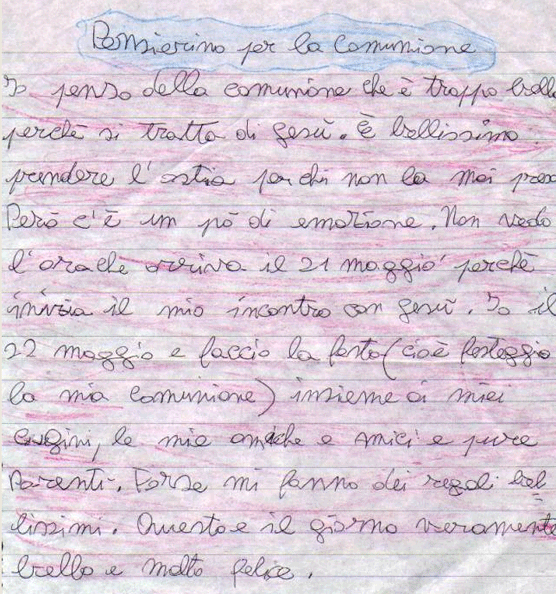 Pensierino per la Comunione
Io penso della comunione che è troppo bella
perchè si tratta di Gesù. È bellissimo
prendere l'ostia per chi non la mai presa
Però c'è un pò di emozione. Non vedo
l'ora che arriva il 21 maggio perchè
inizia il mio incontro con Gesù. Io il
22 maggio e faccio la festa (cioè festeggio
la mia comunione) insieme ai miei
cugini, le mie amiche e amici e pure
parenti. Forse mi fanno dei regali bel
lissimi. Questo e il giorno veramente
bello e molto felice.